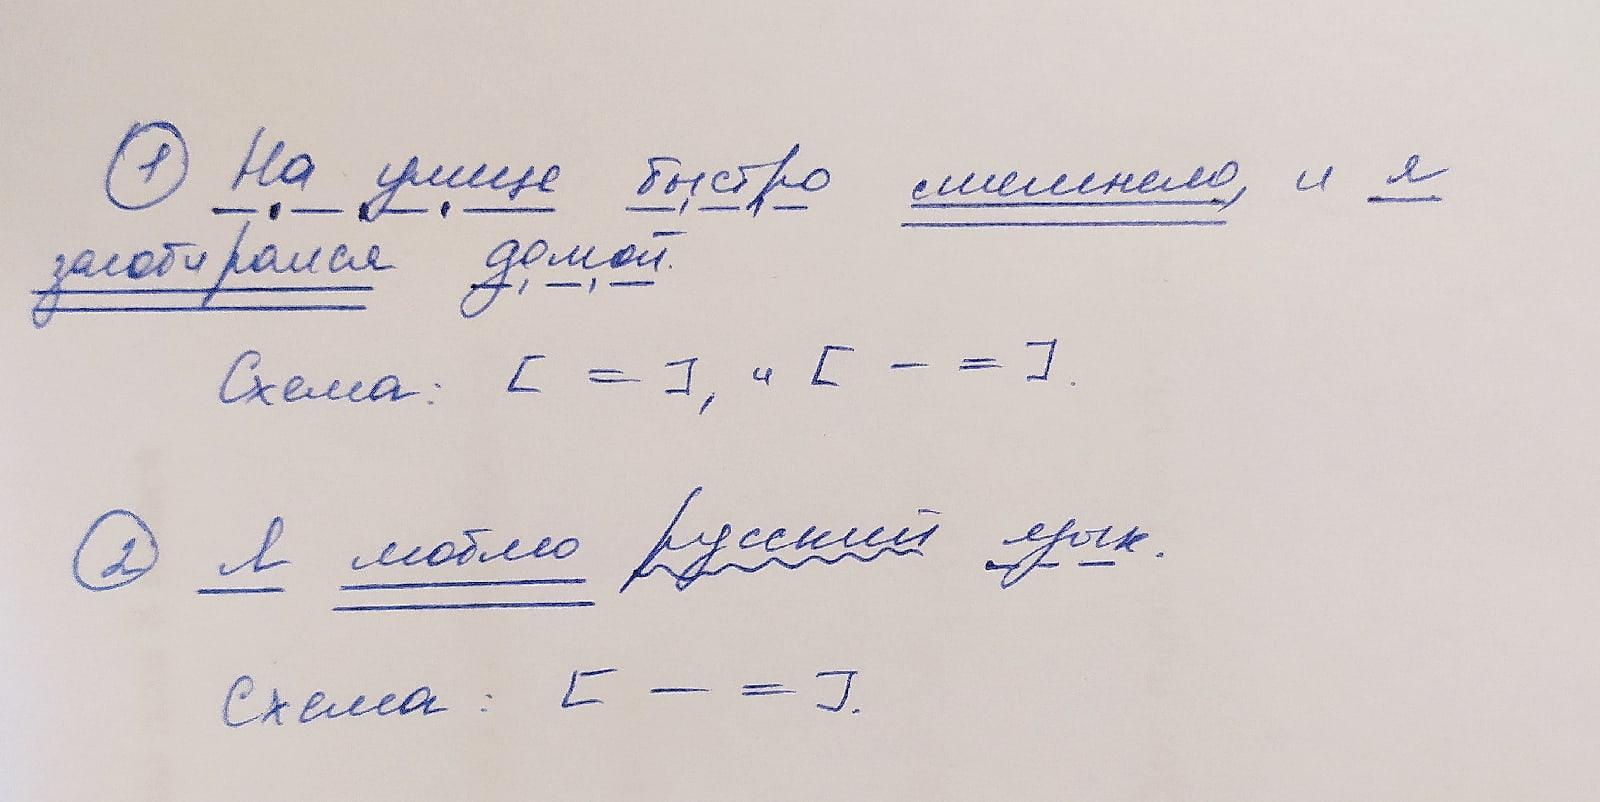 ① На улице быстро стемнело, и я
засобирался домой.
Схема: [ = ], и [ — = ].
② Я люблю русский язык.
Схема: [ — = ].